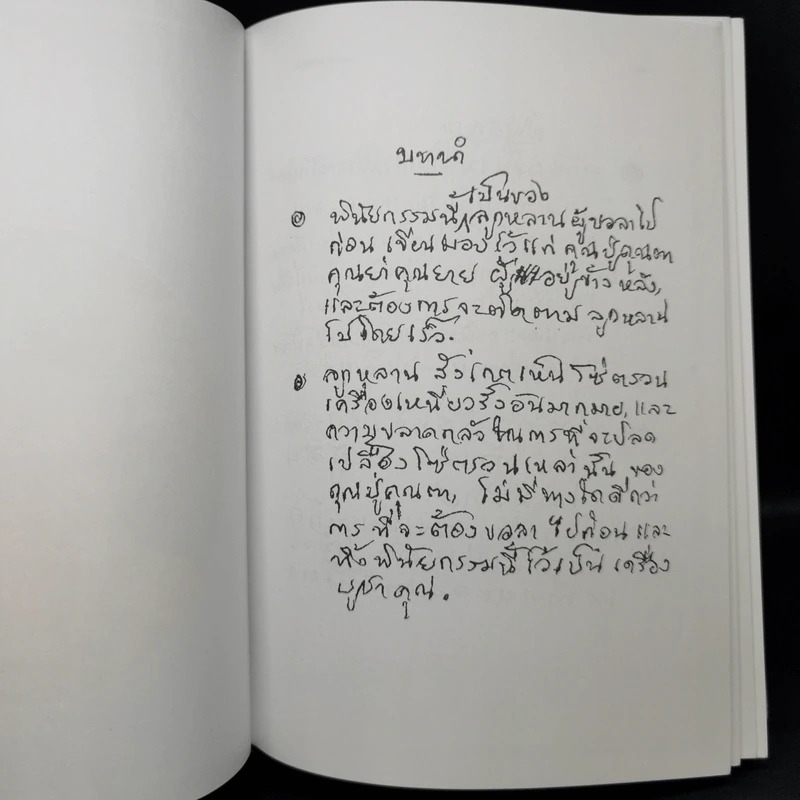 บทนำ
เป็นของ
๑ พินัยกรรมนี้ ลูกหลาน ผู้ขอลาไป
ก่อน เขียนมอบไว้แก่ คุณปู่คุณตา
คุณย่าคุณยาย ผู้อยู่ข้างหลัง,
และต้องการจะติดตาม ลูกหลาน
ไปโดยเร็ว.
๒ ลูกหลาน สังเกตเห็นโซ่ตรวน
เครื่องเหนี่ยวรั้งอันมากมาย, และ
ความขลาดกลัวในการที่จะปลด
เปลื้องโซ่ตรวนเหล่านั้น ของ
คุณปู่คุณตา, ไม่มีทางใดดีกว่า
การที่จะต้องขอลาไปก่อน และ
ทิ้งพินัยกรรมนี้ไว้เป็นเครื่อง
บูชาคุณ.